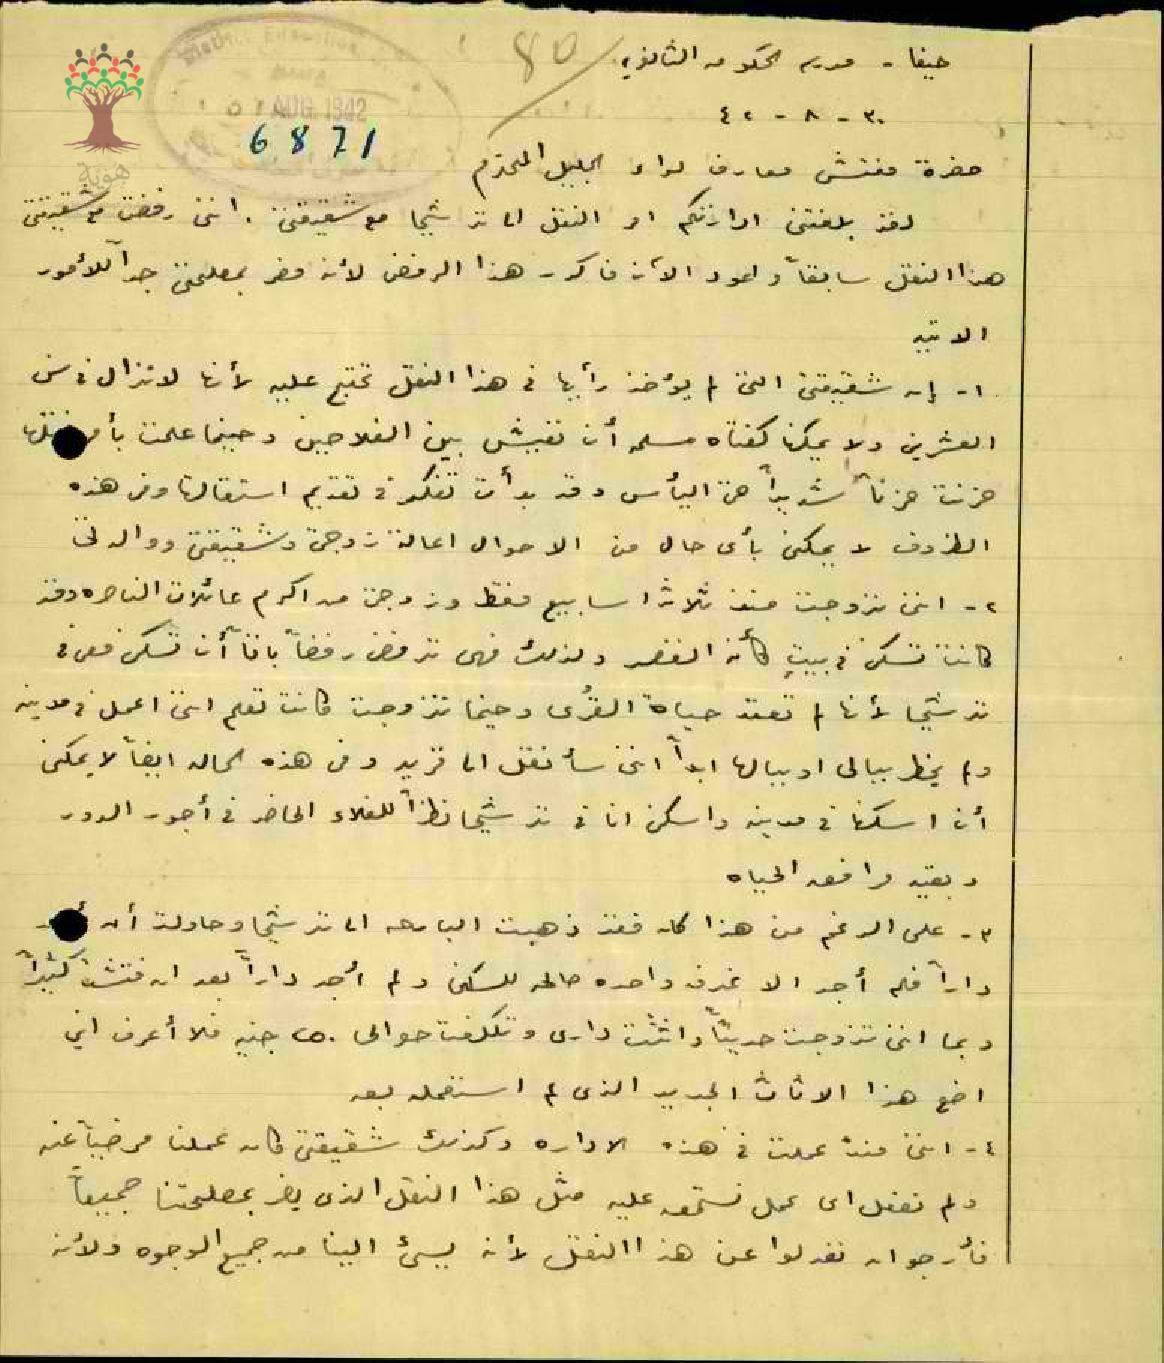 حيفا - مدرسة الحكومة الثانوية
٣٠ - ٨ - ٤٢
AUG 1942
6871
هوية
حضرة مفتش معارف لواء الجليل المحترم
لقد بلغتني ارادتكم او النقل الى ترشيحا مع شقيقتي. انني رفضت مع شقيقتي
هذا النقل سابقاً واعود الآن فاكرر هذا الرفض لأنه مضر بمصلحتي جداً للأمور
الاتيه
١- إن شقيقتي التي لم يؤخذ رأيها في هذا النقل تحتج عليه لأنها لا تزال في سن
العشرين ولا يمكنها كفتاه مسلمه أن تعيش بين الفلاحين وحينما علمت بأمر نقلها
حزنت حزناً شديداً حتى اليأس وقد بدأت تفكر في تقديم استقالتها وفي هذه
الظروف لا يمكنني بأي حال من الاحوال اعالة زوجتي وشقيقتي ووالدتي
٢- انني تزوجت منذ ثلاثة اسابيع فقط وزوجتي من اكرم عائلات الناصره وقد
كانت تسكن في بيتٍ كأنه القصر ولذلك فهي ترفض رفضاً باتاً أن تسكن معي في
ترشيحا لأنها لم تعتد حياة القُرى وحينما تزوجت كانت تعلم انني اعمل في مدينه
ولم يخطر ببالي او ببالها ابداً انني سأنقل الى قريه وفي هذه الحاله ايضاً لا يمكنني
أن اسكنها في مدينه واسكن انا في ترشيحا نظراً للغلاء الحاضر في أجور الدور
وبقيه مرافق الحياه
٣- على الرغم من هذا كله فقد ذهبت البارحه الى ترشيحا وحاولت أن أجد
داراً فلم أجد الا غرفه واحده صالحه للسكنى ولم أجد داراً بعد ان فتشت كثيراً
وبما انني تزوجت حديثاً واثثت داري وتكلفت حوالي ١٥٠ جنيه فلا أعرف اين
اضع هذا الاثاث الجديد الذي لم استعمله بعد
٤- انني منذ عملت في هذه الاداره وكذلك شقيقتي كان عملنا مرضياً عنه
ولم نفعل اي عمل نستحق عليه مثل هذا النقل الذي يضر بمصلحتنا جميعاً
فأرجو ان تعدلوا عن هذا النقل لأنه يسيء الينا من جميع الوجوه ولأنه